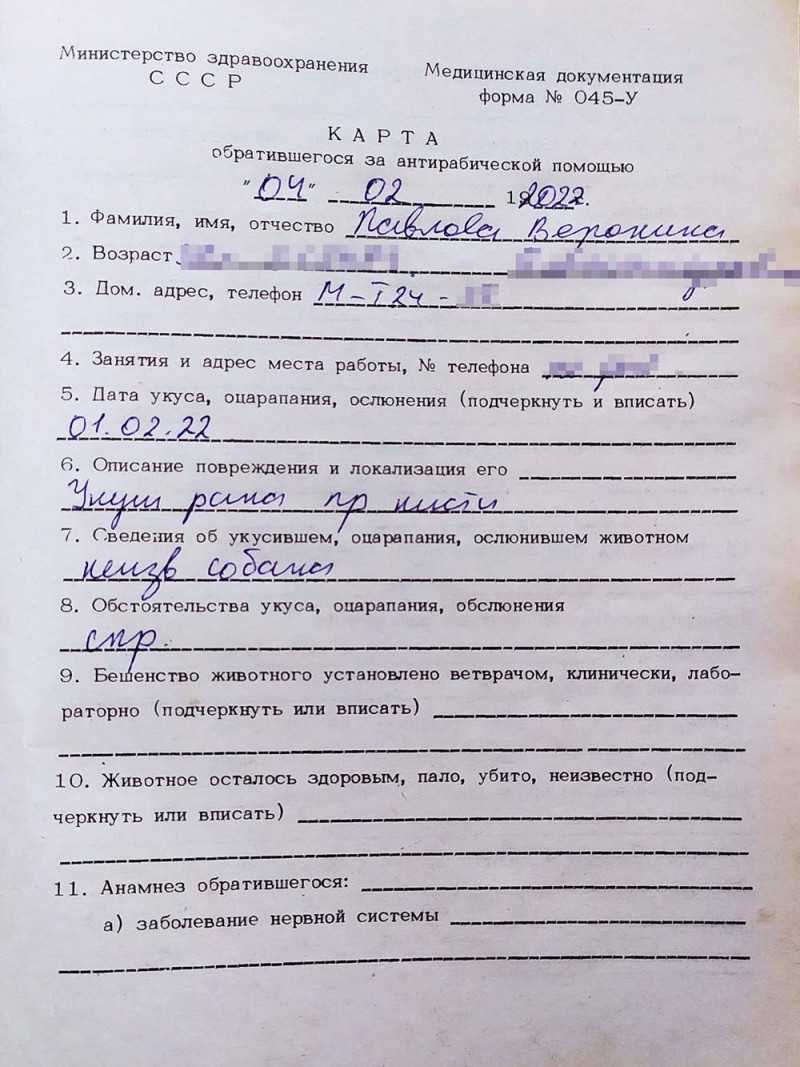 Министерство здравоохранения
С С С Р
Медицинская документация
форма № 045-У
К А Р Т А
обратившегося за антирабической помощью
"04" 02 2022.
1. Фамилия, имя, отчество Павлова Вероника
2. Возраст
3. Дом. адрес, телефон М-I 24-
4. Занятия и адрес места работы, № телефона
5. Дата укуса, оцарапания, ослюнения (подчеркнуть и вписать)
01.02.22
6. Описание повреждения и локализация его
Укуш рана пр кисти
7. Сведения об укусившем, оцарапания, ослюнившем животном
неизв собака
8. Обстоятельства укуса, оцарапания, обслюнения
спр.
9. Бешенство животного установлено ветврачом, клинически, лабо-
раторно (подчеркнуть или вписать)
10. Животное осталось здоровым, пало, убито, неизвестно (под-
черкнуть или вписать)
11. Анамнез обратившегося:
а) заболевание нервной системы